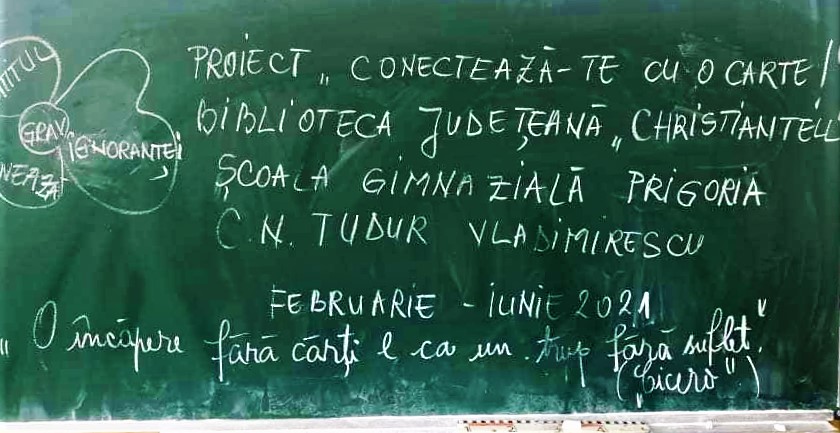 PROIECT „ CONECTEAZĂ-TE CU O CARTE!
BIBLIOTECA JUDEȚEANĂ „ CHRISTIAN TELL
ȘCOALA GIMNAZIALĂ PRIGORIA
C.N. TUDUR VLADIMIRESCU
FEBRUARIE - IUNIE 2021
„ O încăpere fără cărți e ca un trup fără suflet."
(„Cicero".)
TITUL
GRAV
IGNORANTEI
NEAZĂ